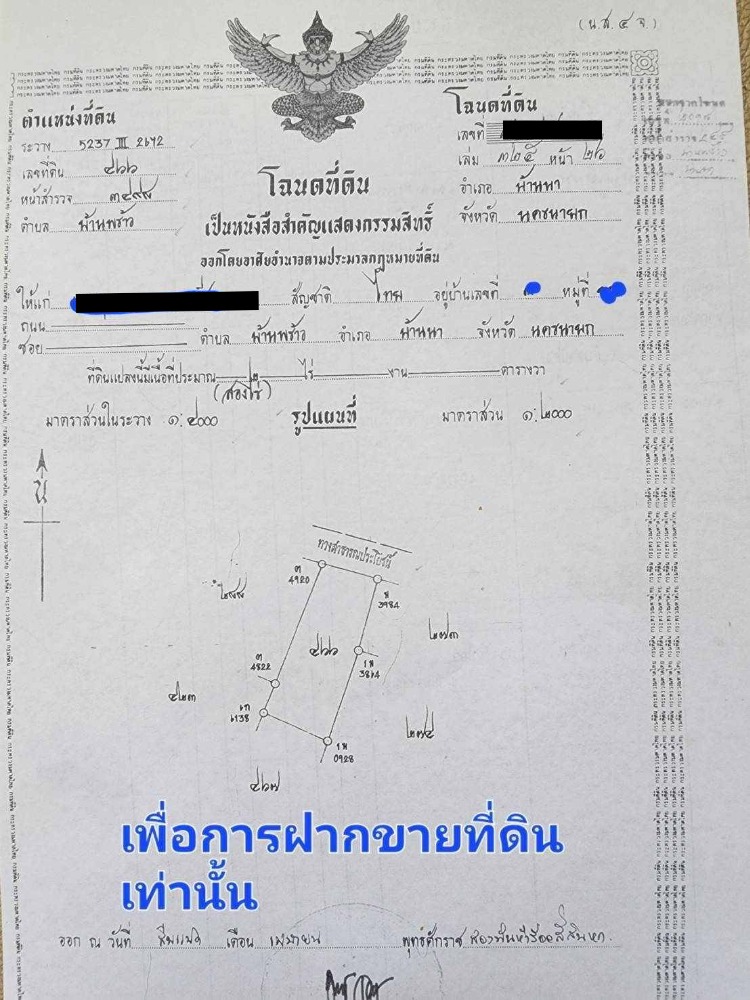 (น.ส.๔ จ.)
ตำแหน่งที่ดิน
ระวาง 5237 III 2642
เลขที่ดิน ๔๖๖
หน้าสำรวจ ๓๔๙๘
ตำบล บ้านพร้าว
โฉนดที่ดิน
เลขที่
เล่ม ๓๒๕ หน้า ๒๖
อำเภอ บ้านนา
จังหวัด นครนายก
โฉนดที่ดิน
เป็นหนังสือสำคัญแสดงกรรมสิทธิ์
ออกโดยอาศัยอำนาจตามประมวลกฎหมายที่ดิน
ให้แก่ สัญชาติ ไทย อยู่บ้านเลขที่ หมู่ที่
ถนน
ซอย ตำบล บ้านพร้าว อำเภอ บ้านนา จังหวัด นครนายก
ที่ดินแปลงนี้มีเนื้อที่ประมาณ ๒ ไร่ งาน ตารางวา
(สองไร่)
มาตราส่วนในระวาง ๑:๔๐๐๐ รูปแผนที่ มาตราส่วน ๑:๒๐๐๐
น
ทางสาธารณประโยชน์
ต
4920
3984
๒๗๓
๔๖๖
ต
4822
๔๒๓
๒๗๔
0928
๔๖๗
เพื่อการฝากขายที่ดิน
เท่านั้น
ออก ณ วันที่ สิบแปด เดือน เมษายน พุทธศักราช สองพันห้าร้อยสี่สิบหก